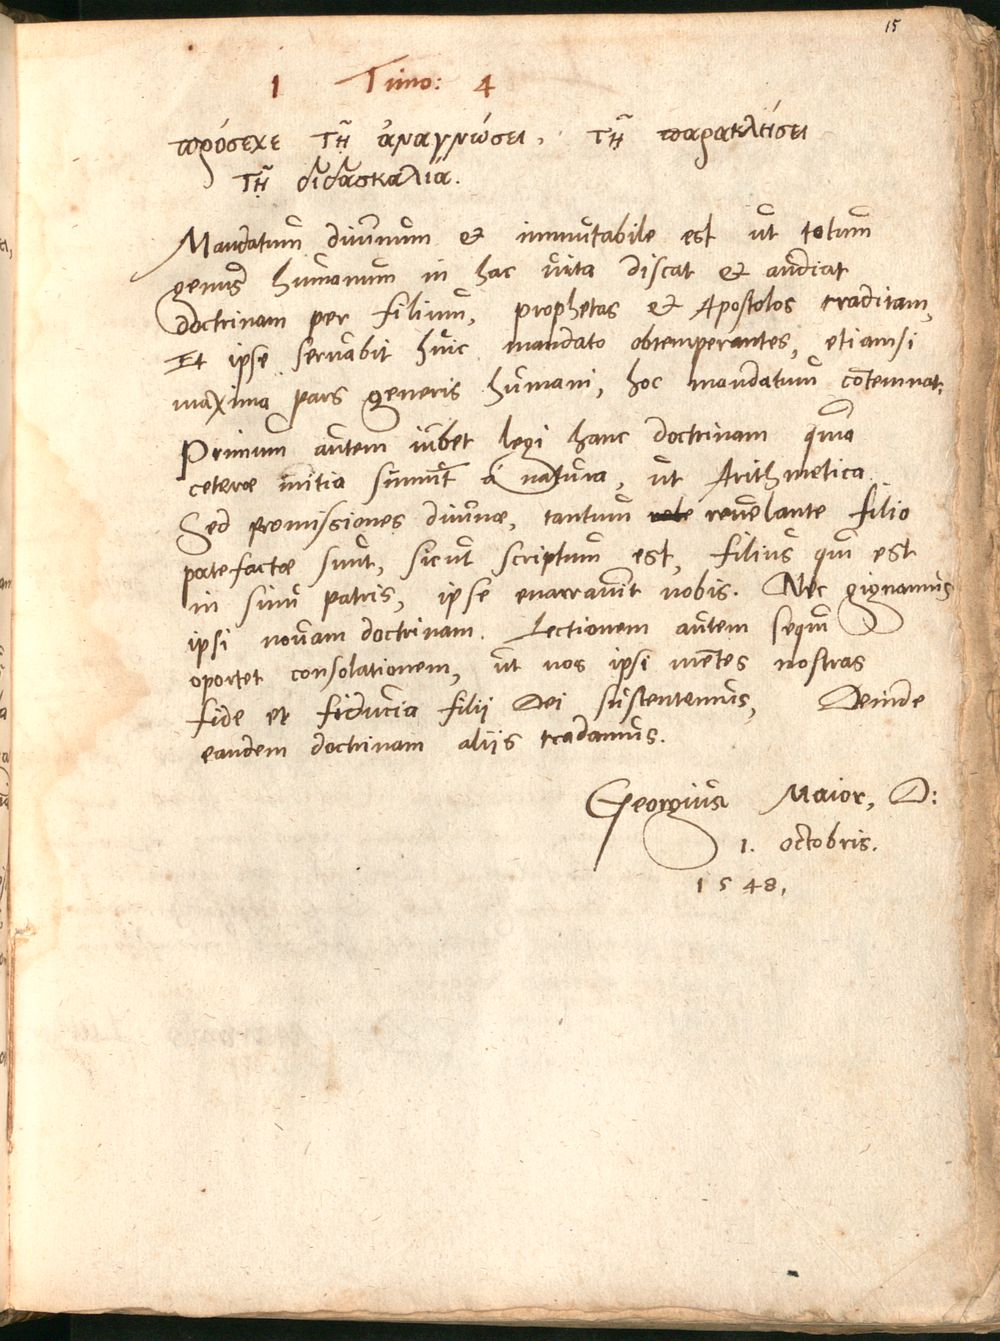 15
1 Timo: 4
πρόσεχε τῇ ἀναγνώσει, τῇ παρακλήσει
τῇ διδασκαλίᾳ.
Mandatum diuinum & immutabile est ut totum
genus humanum in hac uita discat & audiat
doctrinam per filium, prophetas & Apostolos traditam,
Et ipse seruabit huic mandato obtemperantes, etiamsi
maxima pars generis humani, hoc mandatum cōtemnat.
Primum autem iubet legi hanc doctrinam quia
ceteræ initia sumūt a natura, ut Arithmetica.
Sed promissiones diuinæ, tantum reuelante filio
patefactæ sunt, sicut scriptum est, filius qui est
in sinu patris, ipse enarrauit nobis. Nec gignamus
ipsi nouam doctrinam. Lectionem autem sequi
oportet consolationem, ut nos ipsi mētes nostras
fide et fiducia filii Dei sustentemus, Deinde
eandem doctrinam aliis tradamus.
Georgius Maior, D:
1. octobris.
1548,